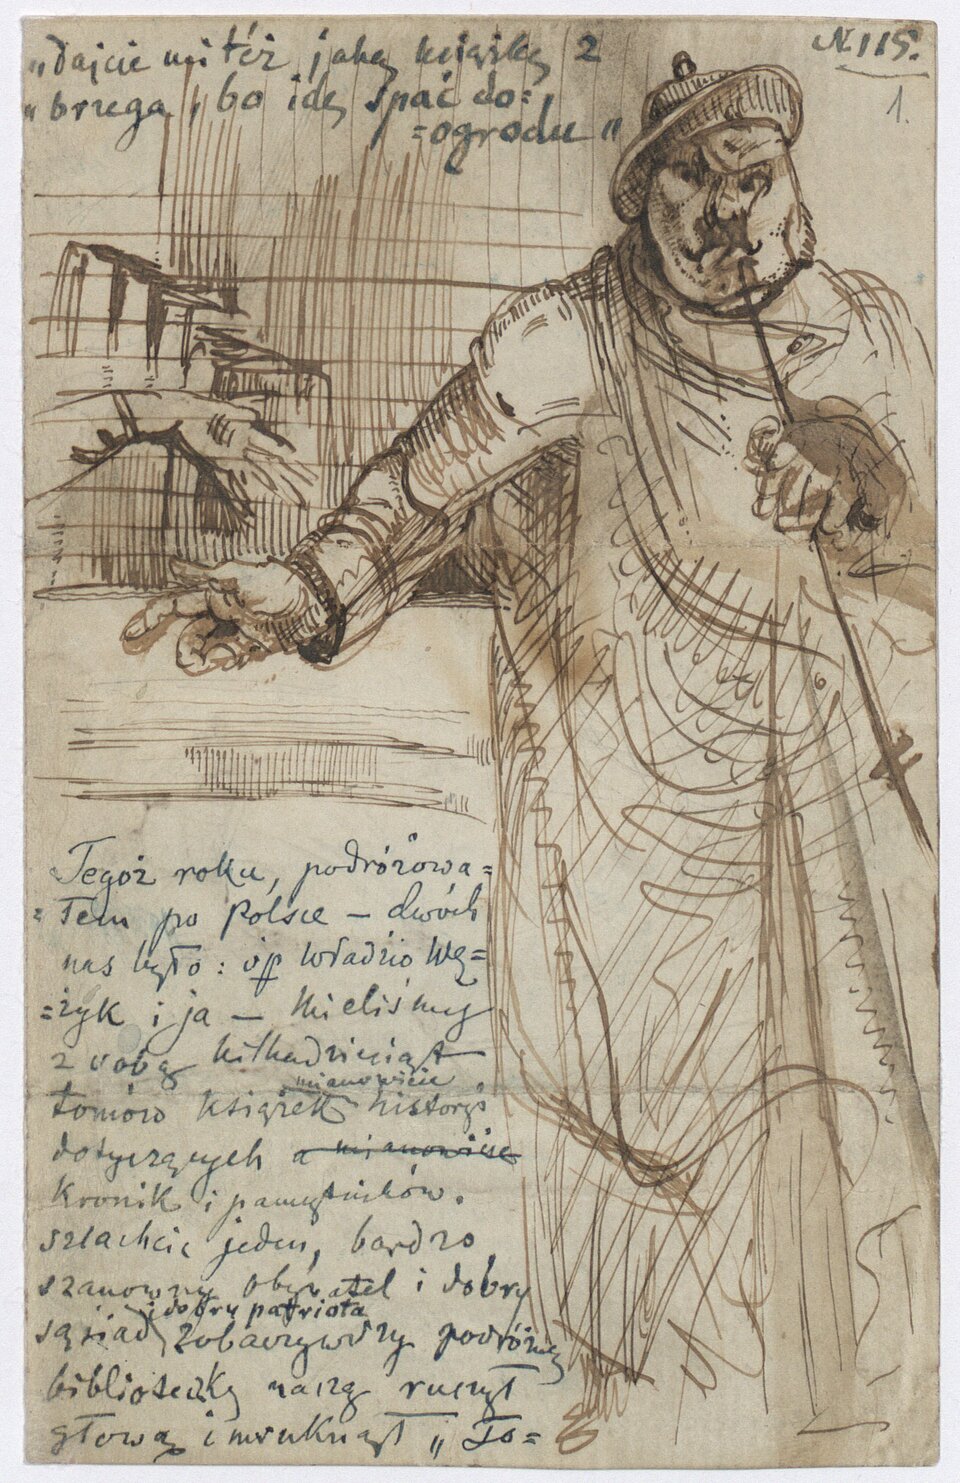 „dajcie mi też jaką książkę z
„brzega, bo idę spać do=
=ogrodu"
N. 115.
1.
Tegoż roku, podróżowa=
=łem po Polsce — dwóch
nas było: ś/p Władzio Wę=
=żyk i ja — Mieliśmy
z sobą kilkadziesiąt
mianowicie
tomów książek history:
dotyczących a mianowicie
Kronik i pamiętników.
szlachcic jeden, bardzo
szanowny obywatel i dobry
i dobry patriota
sąsiad zobaczywszy podróżną
biblioteczkę naszą ruszył
głową i mruknął „To=